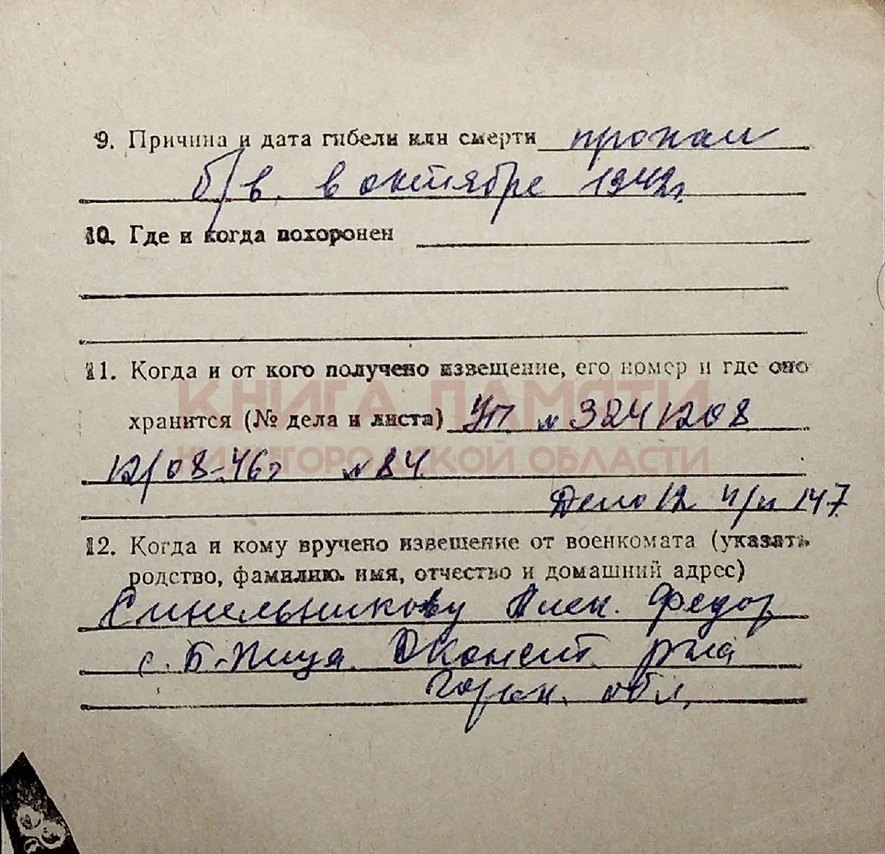 9. Причина и дата гибели или смерти пропал
б/в. в октябре 1942г.
10. Где и когда похоронен
11. Когда и от кого получено извещение, его номер и где оно
КНИГА ПАМЯТИ
хранится (№ дела и листа) Уп. № 3241208
НИЖЕГОРОДСКОЙ ОБЛАСТИ
12/08-46г №84
Дело 12 п/н 147
12. Когда и кому вручено извещение от военкомата (указать
родство, фамилию. имя, отчество и домашний адрес)
Синельникову Алек. Федор
с. Б-Пица р-на
Горьк. обл.